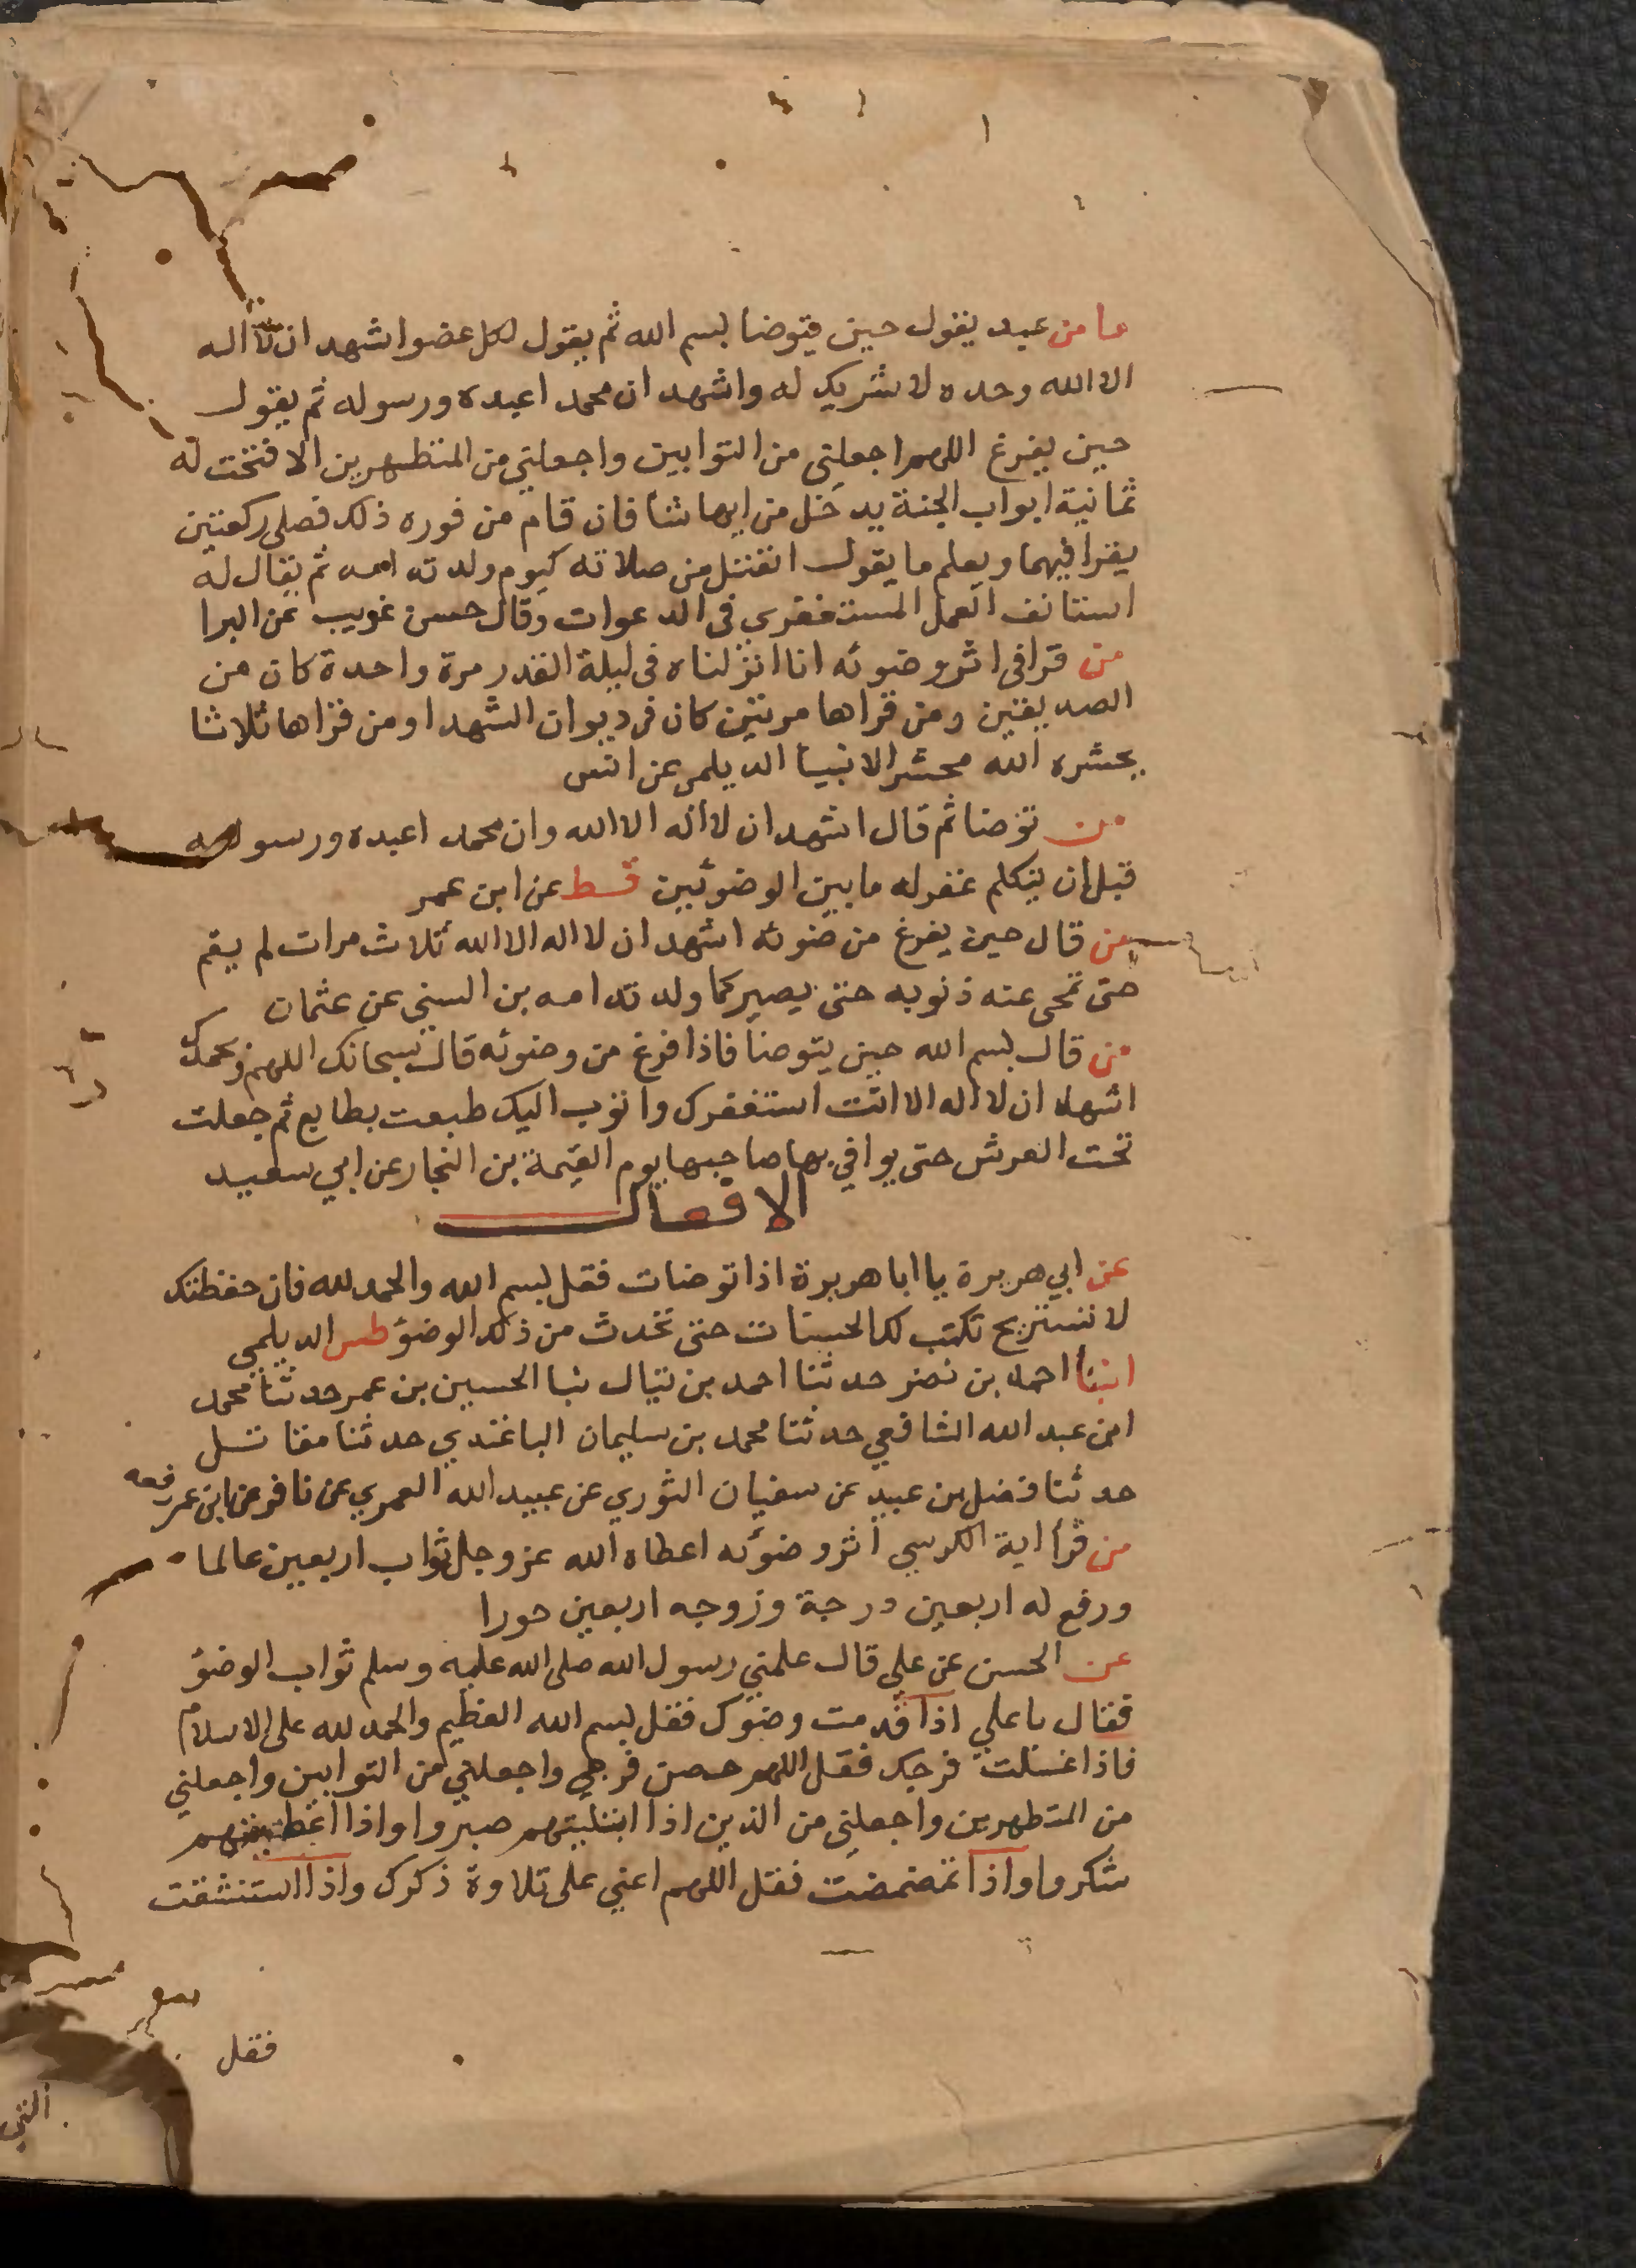 ما من عبد يقول حين يتوضا بسم الله ثم يقول لكل عضو اشهد ان لا اله
الا الله وحده لا شريك له واشهد ان محمدا عبده ورسوله ثم يقول
حين يفرغ اللهم اجعلني من التوابين واجعلني من المتطهرين الا فتحت له
ثمانية ابواب الجنة يدخل من ايها شأ فان قام من فوره ذلك فصلى ركعتين
يقرا فيهما ويعلم ما يقول انفتل من صلاته كيوم ولدته امه ثم يقال له
استانف العمل المستغفري في الدعوات وقال حسن غريب عن البرا
من قرا في اثر وضوئه انا انزلناه في ليلة القدر مرة واحدة كان من
الصديقين ومن قراها مرتين كان في ديوان الشهدا ومن قراها ثلاثا
يحشره الله محشر الانبيا الديلمي عن انس
من توضا ثم قال اشهد ان لا اله الا الله وان محمدا عبده ورسوله
قبل ان يتكلم غفر له ما بين الوضوئين قط عن ابن عمر
من قال حين يفرغ من ضوئه اشهد ان لا اله الا الله ثلاث مرات لم يقم
حتى تمحى عنه ذنوبه حتى يصير كما ولدته امه بن السني عن عثمان
من قال بسم الله حين يتوضأ فاذا فرغ من وضوئه قال سبحانك اللهم وبحمدك
اشهد ان لا اله الا انت استغفرك واتوب اليك طبعت بطابع ثم جعلت
تحت العرش حتى يوافي بها صاحبها يوم القيمة بن النجار عن ابي سعيد
الافعال
عن ابي هريرة يا ابا هريرة اذا توضات فقل بسم الله والحمد لله فان حفظتك
لا تستريح تكتب لك الحسنات حتى تحدث من ذلك الوضؤ طس الديلمي
انبأ احمد بن نصر حدثنا احمد بن نيال نبا الحسين بن عمر حدثنا محمد
ابن عبد الله الشافعي حدثنا محمد بن سليمان الباغندي حدثنا مقاتل
حدثنا فضل بن عبيد عن سفيان الثوري عن عبيد الله العمري عن نافع عن ابن عمر رفعه
من قرأ اية الكرسي اثر وضوئه اعطاه الله عز وجل ثواب اربعين عالما
ورفع له اربعين درجة وزوجه اربعين حورا
عن الحسن عن علي قال علمني رسول الله صلى الله عليه وسلم ثواب الوضؤ
فقال يا علي اذا قدمت وضوك فقل بسم الله العظيم والحمد لله على الاسلام
فاذا غسلت فرجك فقل اللهم حصن فرجي واجعلني من التوابين واجعلني
من المتطهرين واجعلني من الذين اذا ابتليتهم صبروا واذا اعطيتهم
شكروا واذا تمضمضت فقل اللهم اعني على تلاوة ذكرك واذا استنشقت
فقل